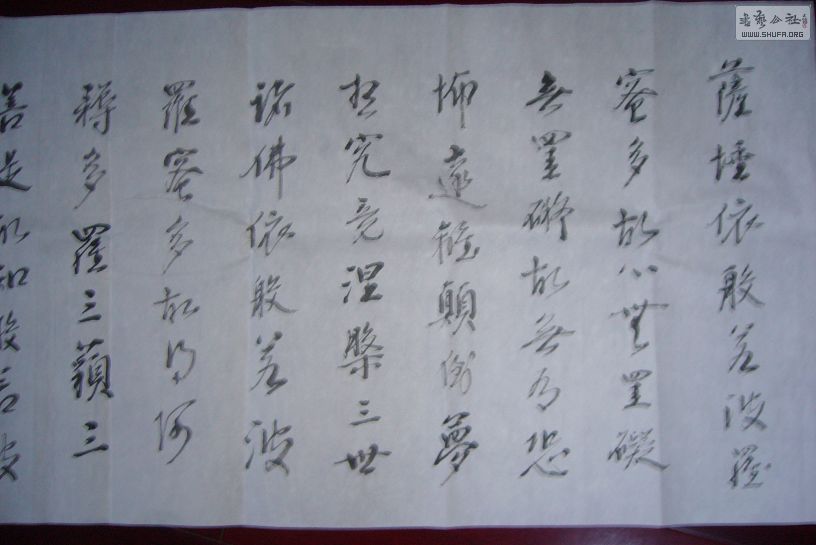 書藝公社
WWW.SHUFA.ORG
薩埵依般若波羅
蜜多故心無罣礙
無罣礙故無有恐
怖遠離顛倒夢
想究竟涅槃三世
諸佛依般若波
羅蜜多故得阿
耨多羅三藐三
菩提故知般若波